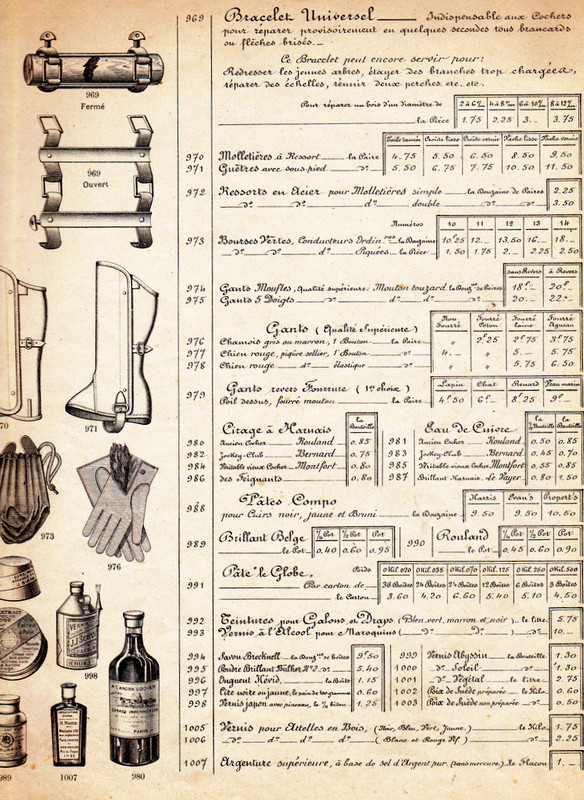 969 Bracelet Universel — Indispensable aux Cochers
pour réparer provisoirement en quelques secondes tous brancards
ou flèches brisés. —
Ce Bracelet peut encore servir pour:
Redresser les jeunes arbres, étayer des branches trop chargées,
réparer des échelles, réunir deux perches, etc., etc.
Pour réparer un bois d'un diamètre de 2 à 6 c/m 4 à 8 c/m 6 à 10 c/m 8 à 12 c/m
la Pièce 1.75 2.25 3. — 3.75
969
Fermé
969
Ouvert
Croûte lisse Croûte vernie Vache lisse Vache vernie
970 Molletières à Ressort — la Paire 4.75 5.50 6.50 8.50 9.50
971 Guêtres avec sous-pied — do 5.50 6.75 7.75 10.50 11.50
972 Ressorts en Acier pour Molletières simple — la Douzaine de Paires 2.25
do do do double do 3.50
Numéros 10 11 12 13 14
973 Bourses Vertes, Conducteurs Ordinres la Douzaine 10.25 12. — 13.50 16. — 18. —
do do do Piquées la Pièce 1.50 1.75 2. — 2.25 2.50
sans Revers à Revers
974 Gants Moufles, Qualité supérieure: Mouton touzard la Douzne de Paires 18f — 20f —
975 Gants 5 Doigts — do do do 20. — 22. —
Gants (Qualité Supérieure)
Non Fourré Fourré Coton Fourré Laine Fourré Agneau
976 Chamois gris ou marron, 1 Bouton — la Paire " 2f25 2f75 3f75
977 Chien rouge, piqûre sellier, 1 Bouton — do 4. — " 5. — 5.75
978 Chien rouge — do élastique — do " " 5.75 6.50
Gants revers Fourrure (1er choix) Lapin Chat Renard Veau marin
979 Poil dessus, fourré mouton — la Paire 4f50 6f — 8f25 9f —
971
Cirage à Harnais la Bouteille
Eau de Cuivre la ½ Bouteille la Bouteille
980 Ancien Cocher — Rouland 0.85
981 Ancien Cocher — Rouland 0.50 0.85
982 Jockey-Club — Bernard 0.75
983 Jockey-Club — Bernard 0.45 0.70
984 Véritable vieux Cocher — Montfort 0.80
985 Véritable vieux Cocher Montfort 0.55 0.85
986 des Feignants 0.80
987 Brillant Harnais. Le Payer 0.80 1.50
Pâtes Compo Harris Propert's
988 pour Cuirs noir, jaune et Bruni — la Douzaine 9.50 9.50 10.50
973
976
989 Brillant Belge ¼ Pot ½ Pot Pot
le Pot 0.40 0.60 0.95
990 Rouland ¼ Pot ½ Pot Pot
le Pot 0.45 0.60 0.90
Pâte "le Globe" Poids 0 Kil.020 0 Kil.035 0 Kil.070 0 Kil.125 0 Kil.250 0 Kil.500
991 Par carton de 36 Boîtes 24 Boîtes 24 Boîtes 12 Boîtes 6 Boîtes 3 Boîtes
le Carton 3.60 4.20 6.60 5.40 5.10 4.50
992 Teintures pour Galons et Draps (Bleu, vert, marron et noir) le litre 5.75
993 Vernis à l'Alcool pour Maroquins ( do do ) do 10. —
994 Savon Brecknell — la Douzne de Boîtes 9f50
995 Poudre Brillant Nº 2 — do 5.40
996 Onguent Hévid, — la Boîte 1.15
997 Cire noire ou jaune, le pain de 500 grammes 0.60
998 Vernis japon avec pinceau, le ½ bidon 1.25
999 Vernis Abyssin — la Bouteille 1.30
1000 do Soleil — do 1.30
1001 do Végétal — le litre 2.75
1002 Poix de Suède préparée — le Kilo 0.60
1003 Poix de Suède non préparée — do 0.50
998
1005 Vernis pour Attelles en Bois, (Noir, Bleu, Vert, Jaune.) — le Kilo 1.75
1006 do do do do (Blanc et Rouge Vif) — do 2.25
1007 Argenture supérieure, à base de sel d'Argent pur. (sans mercure) le Flacon 1. —
989
1007
980